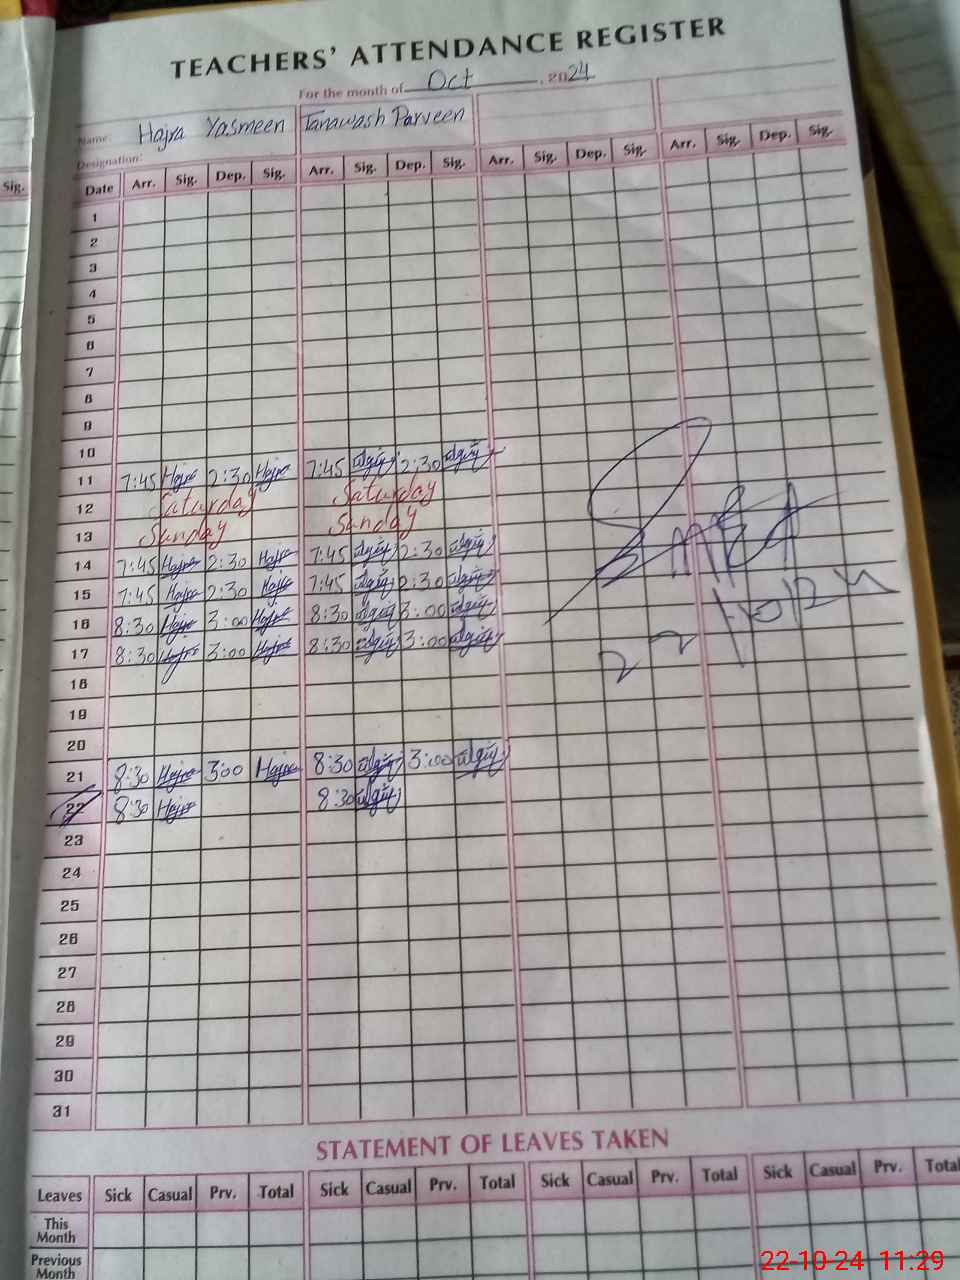 TEACHERS' ATTENDANCE REGISTER
For the month of Oct , 2024
Name: Hajra Yasmeen Tanawash Parveen
Designation:
Sig. Date Arr. Sig. Dep. Sig. Arr. Sig. Dep. Sig. Arr. Sig. Dep. Sig. Arr. Sig. Dep. Sig.
1
2
3
4
5
6
7
8
9
10
11 7:45 Hajra 2:30 Hajra 7:45 2:30
12 Saturday Saturday
13 Sunday Sunday
14 7:45 Hajra 2:30 Hajra 7:45 2:30
15 7:45 Hajra 2:30 Hajra 7:45 2:30
16 8:30 Hajra 3:00 Hajra 8:30 3:00
17 8:30 Hajra 3:00 Hajra 8:30 3:00
18
19
20
21 8:30 Hajra 3:00 Hajra 8:30 3:00
22 8:30 Hajra 8:30
23
24
25
26
27
28
29
30
31
STATEMENT OF LEAVES TAKEN
Leaves Sick Casual Prv. Total Sick Casual Prv. Total Sick Casual Prv. Total Sick Casual Prv. Total
This Month
Previous Month
22-10-24 11:29